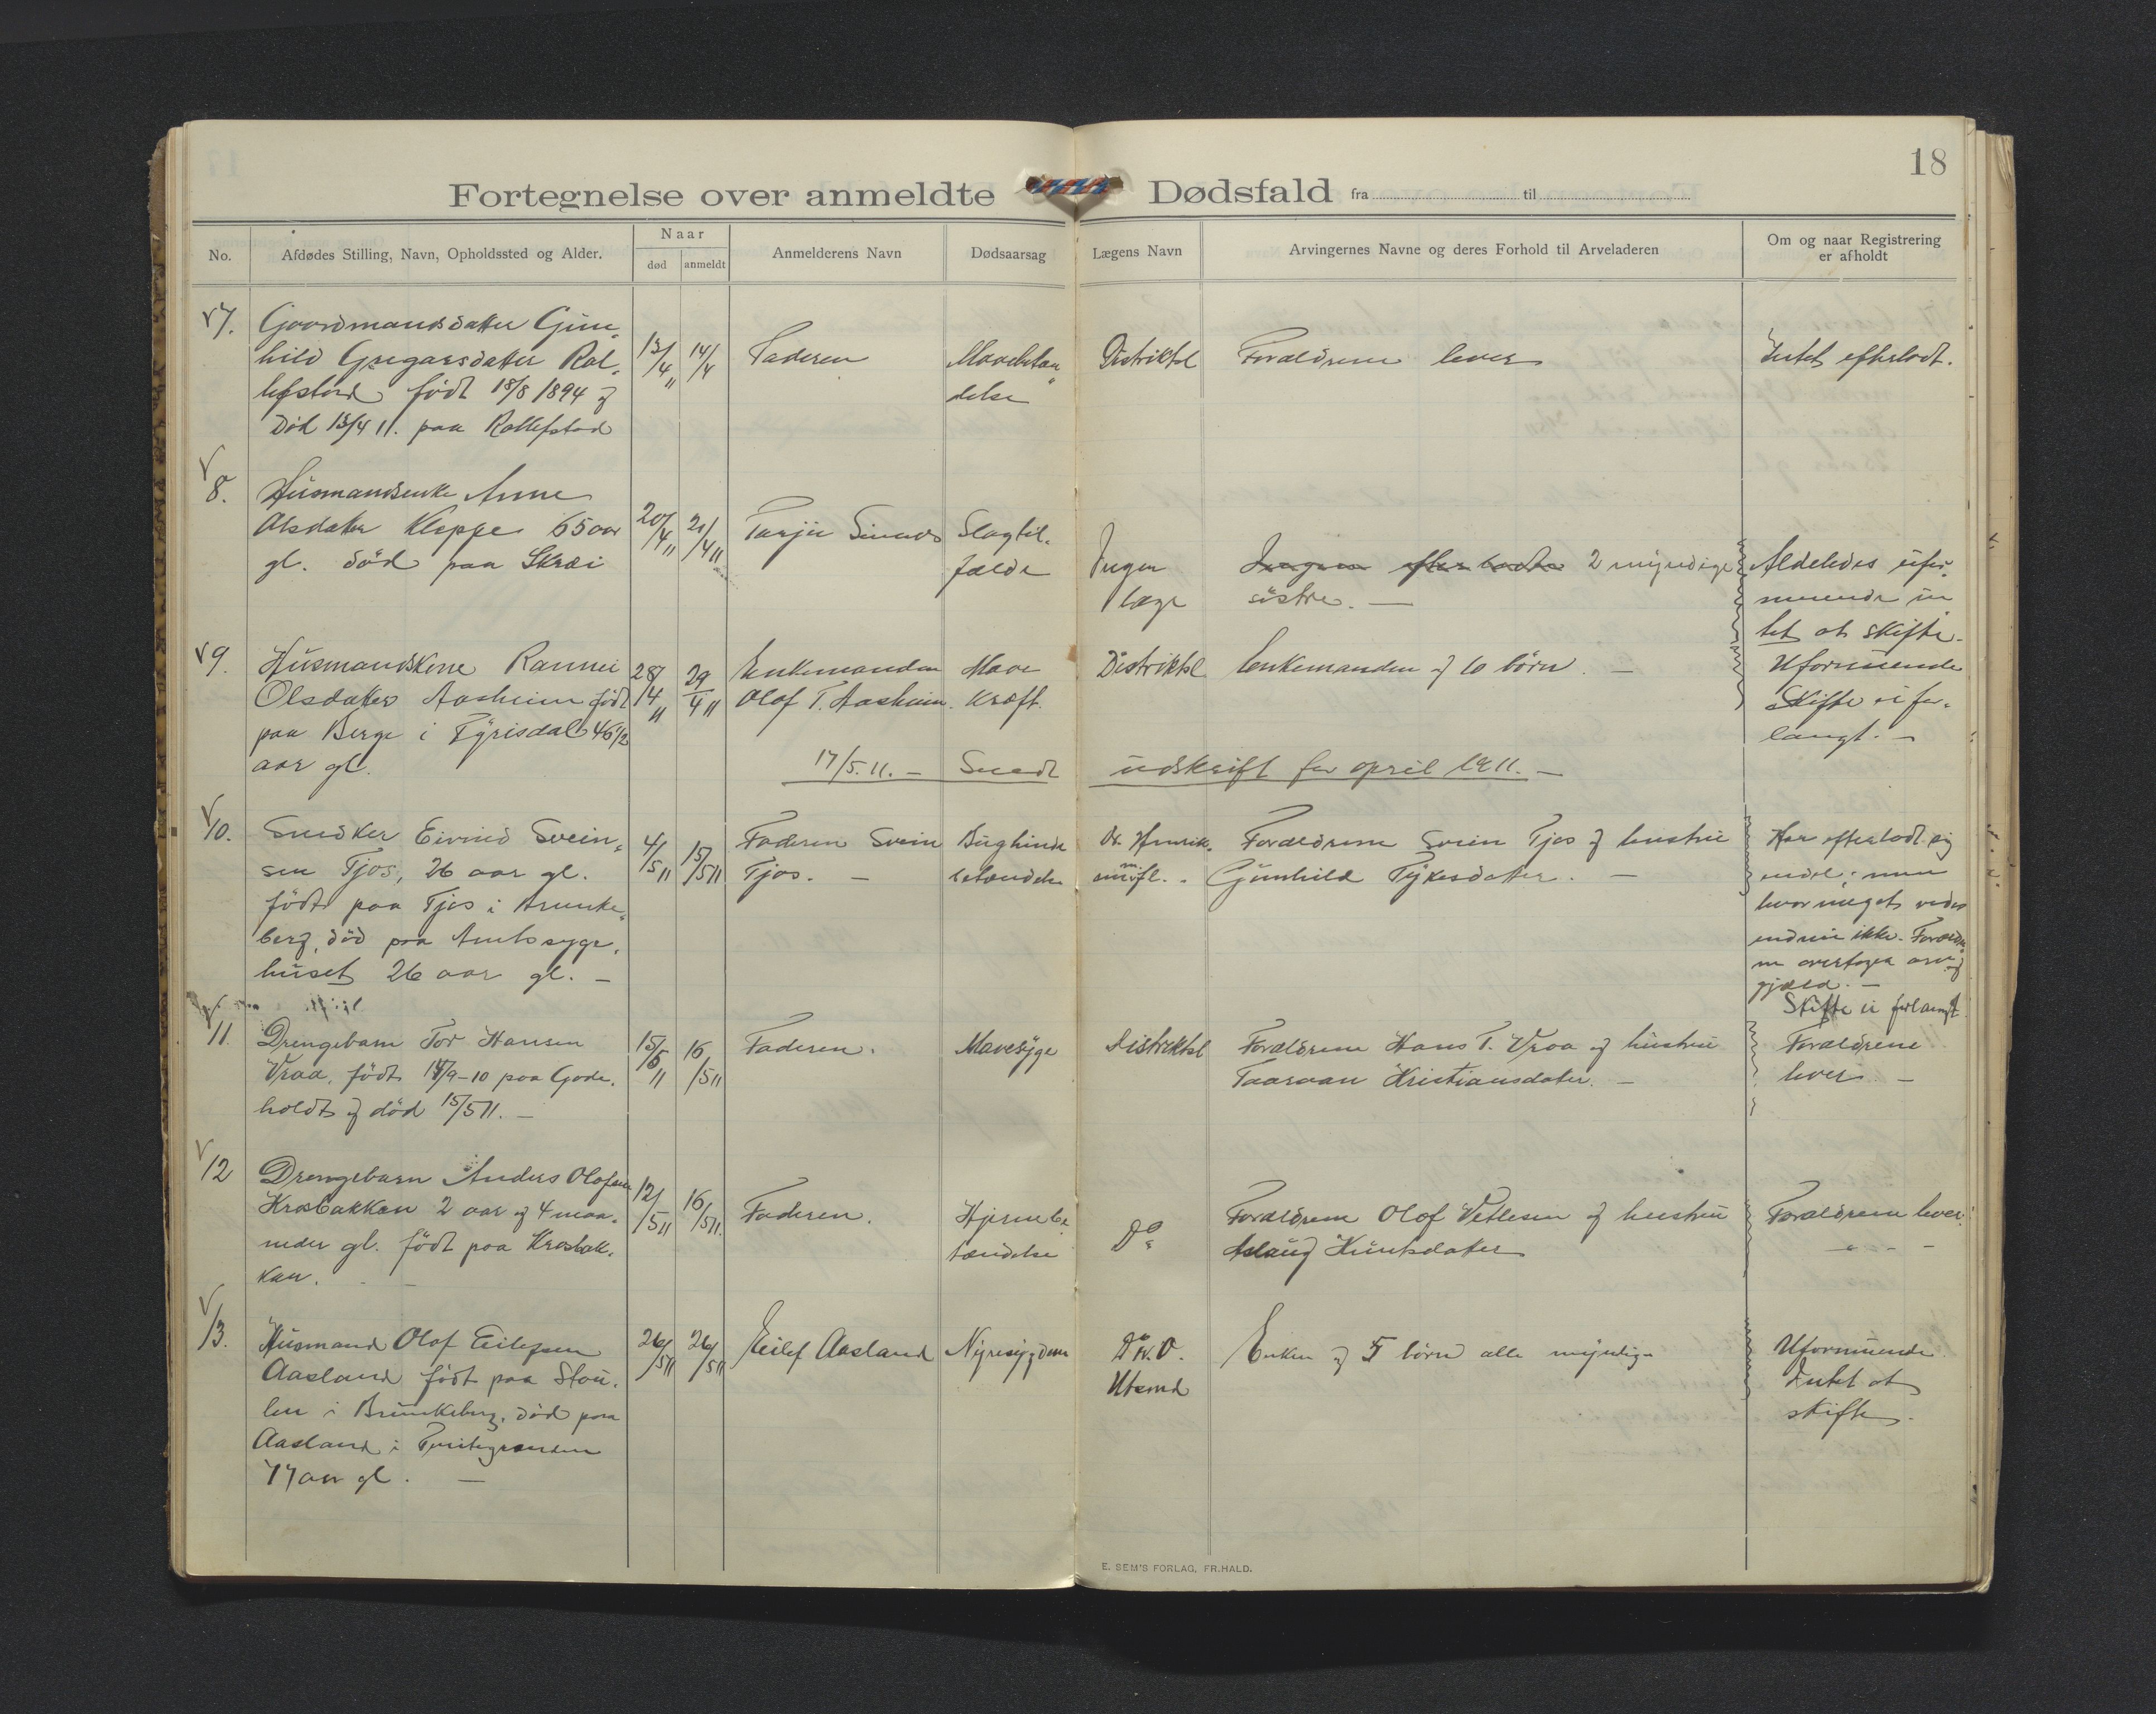 18
Fortegnelse over anmeldte Dødsfald fra til
No. Afdødes Stilling, Navn, Opholdssted og Alder. Naar død anmeldt Anmelderens Navn Dødsaarsag Lægens Navn Arvingernes Navne og deres Forhold til Arveladeren Om og naar Registrering er afholdt
7. Gaardmandsdatter Gun-
hild Gregarsdatter Rol-
lefstad født 18/8 1894 og
død 13/4 11. paa Rollefstad
13/4 11 14/4 Faderen
Mavebetæn
delse
Distriktsl Forældrene lever Intet efterladt.
8. Husmandsenke Anne
Olsdatter Kleppe 65 aar
gl. død paa Skræi
20/4 11 21/4 11 Tarjei
Slagtil-
fælde
Ingen
læge
2 myndige
søstre. —
Aldeledes ufor-
muende in
tet at skifte.
9. Husmandskone Rannei
Olsdatter Aasheim født
paa Berge i Fyrisdal 46 1/2
aar gl.
28/4 11 29/4 11 Enkemanden
Olof T. Aasheim.
Mave
kræft.
Distriktsl Enkemanden og 10 børn. —
Uformuende
Skifte ei for-
langt. —
17/5. 11. — Sendt udskrift for april 1911. —
10. Snedker Eivind Svein-
sen Tjos, 26 aar gl.
født paa Tjos i Brunke-
berg, død paa Amtssyge-
huset 26 aar gl. —
4/5 11 15/5 11 Faderen Svein
Tjos. —
Bughinde
betændelse
Dr. Henrik-
Forældrene Svein Tjos og hustru
Gunhild Tykesdatter. —
Har efterladt sig
endel; men
hvor meget vides
endnu ikke. Forældre
ne overtager arv og
gjæld. —
Skifte ei forlangt
11. Drengebarn Tor Hansen
Vraa, født 14/9-10 paa Gode-
holdt og død 15/5 11. —
15/5 11 16/5 11 Faderen. Mavesyge Distriktsl
Forældrene Hans T. Vraa og hustru
Taaraan Kristiansdater. —
Forældrene
lever. —
12 Drengebarn Anders Olofsen
Krosbakken 2 aar og 4 maa-
neder gl. født paa Krosbak-
ken. —
12/5 11 16/5 11. Faderen.
Hjernebe
tændelse
Do
Forældrene Olof Vetlesen og hustru
Aslaug Knutsdatter
Forældrene lever.
13. Husmand Olof Eilefsen
Aasland født paa Stou-
len i Brunkeberg, død paa
Aasland i
77 aar gl. —
26/5 11 26/5 11 Eilef Aasland Nyresygdom
Utsond
Enken og 5 børn alle myndige
Uformuende
Intet at
skifte.
E. SEM'S FORLAG, FR.HALD.